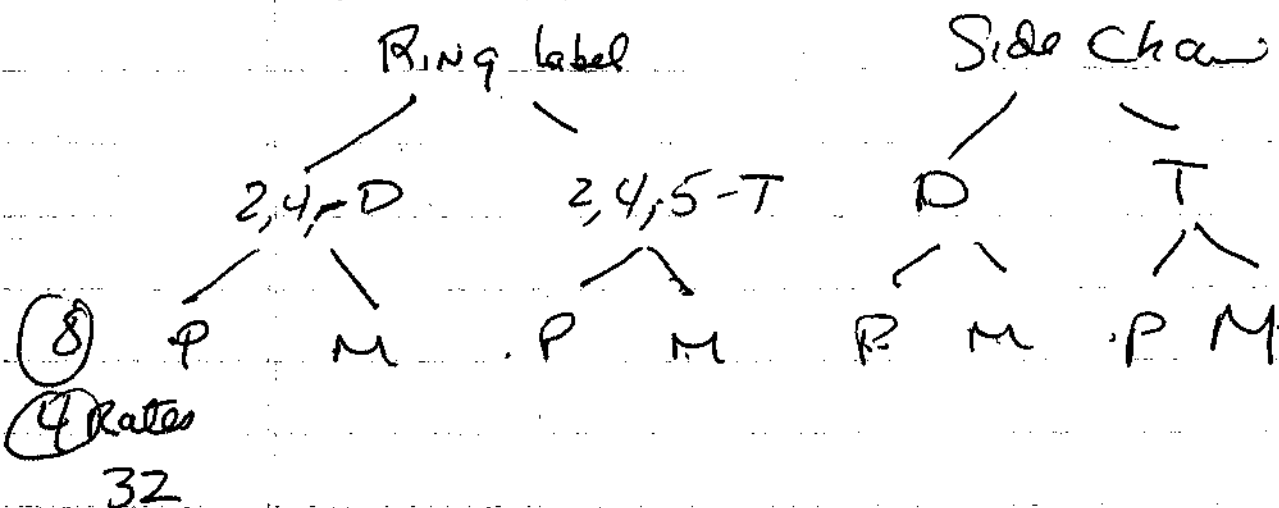 Ring label Side Chain
2,4,-D 2,4,5-T D T
8 P M P M P M P M
4 Rates
32